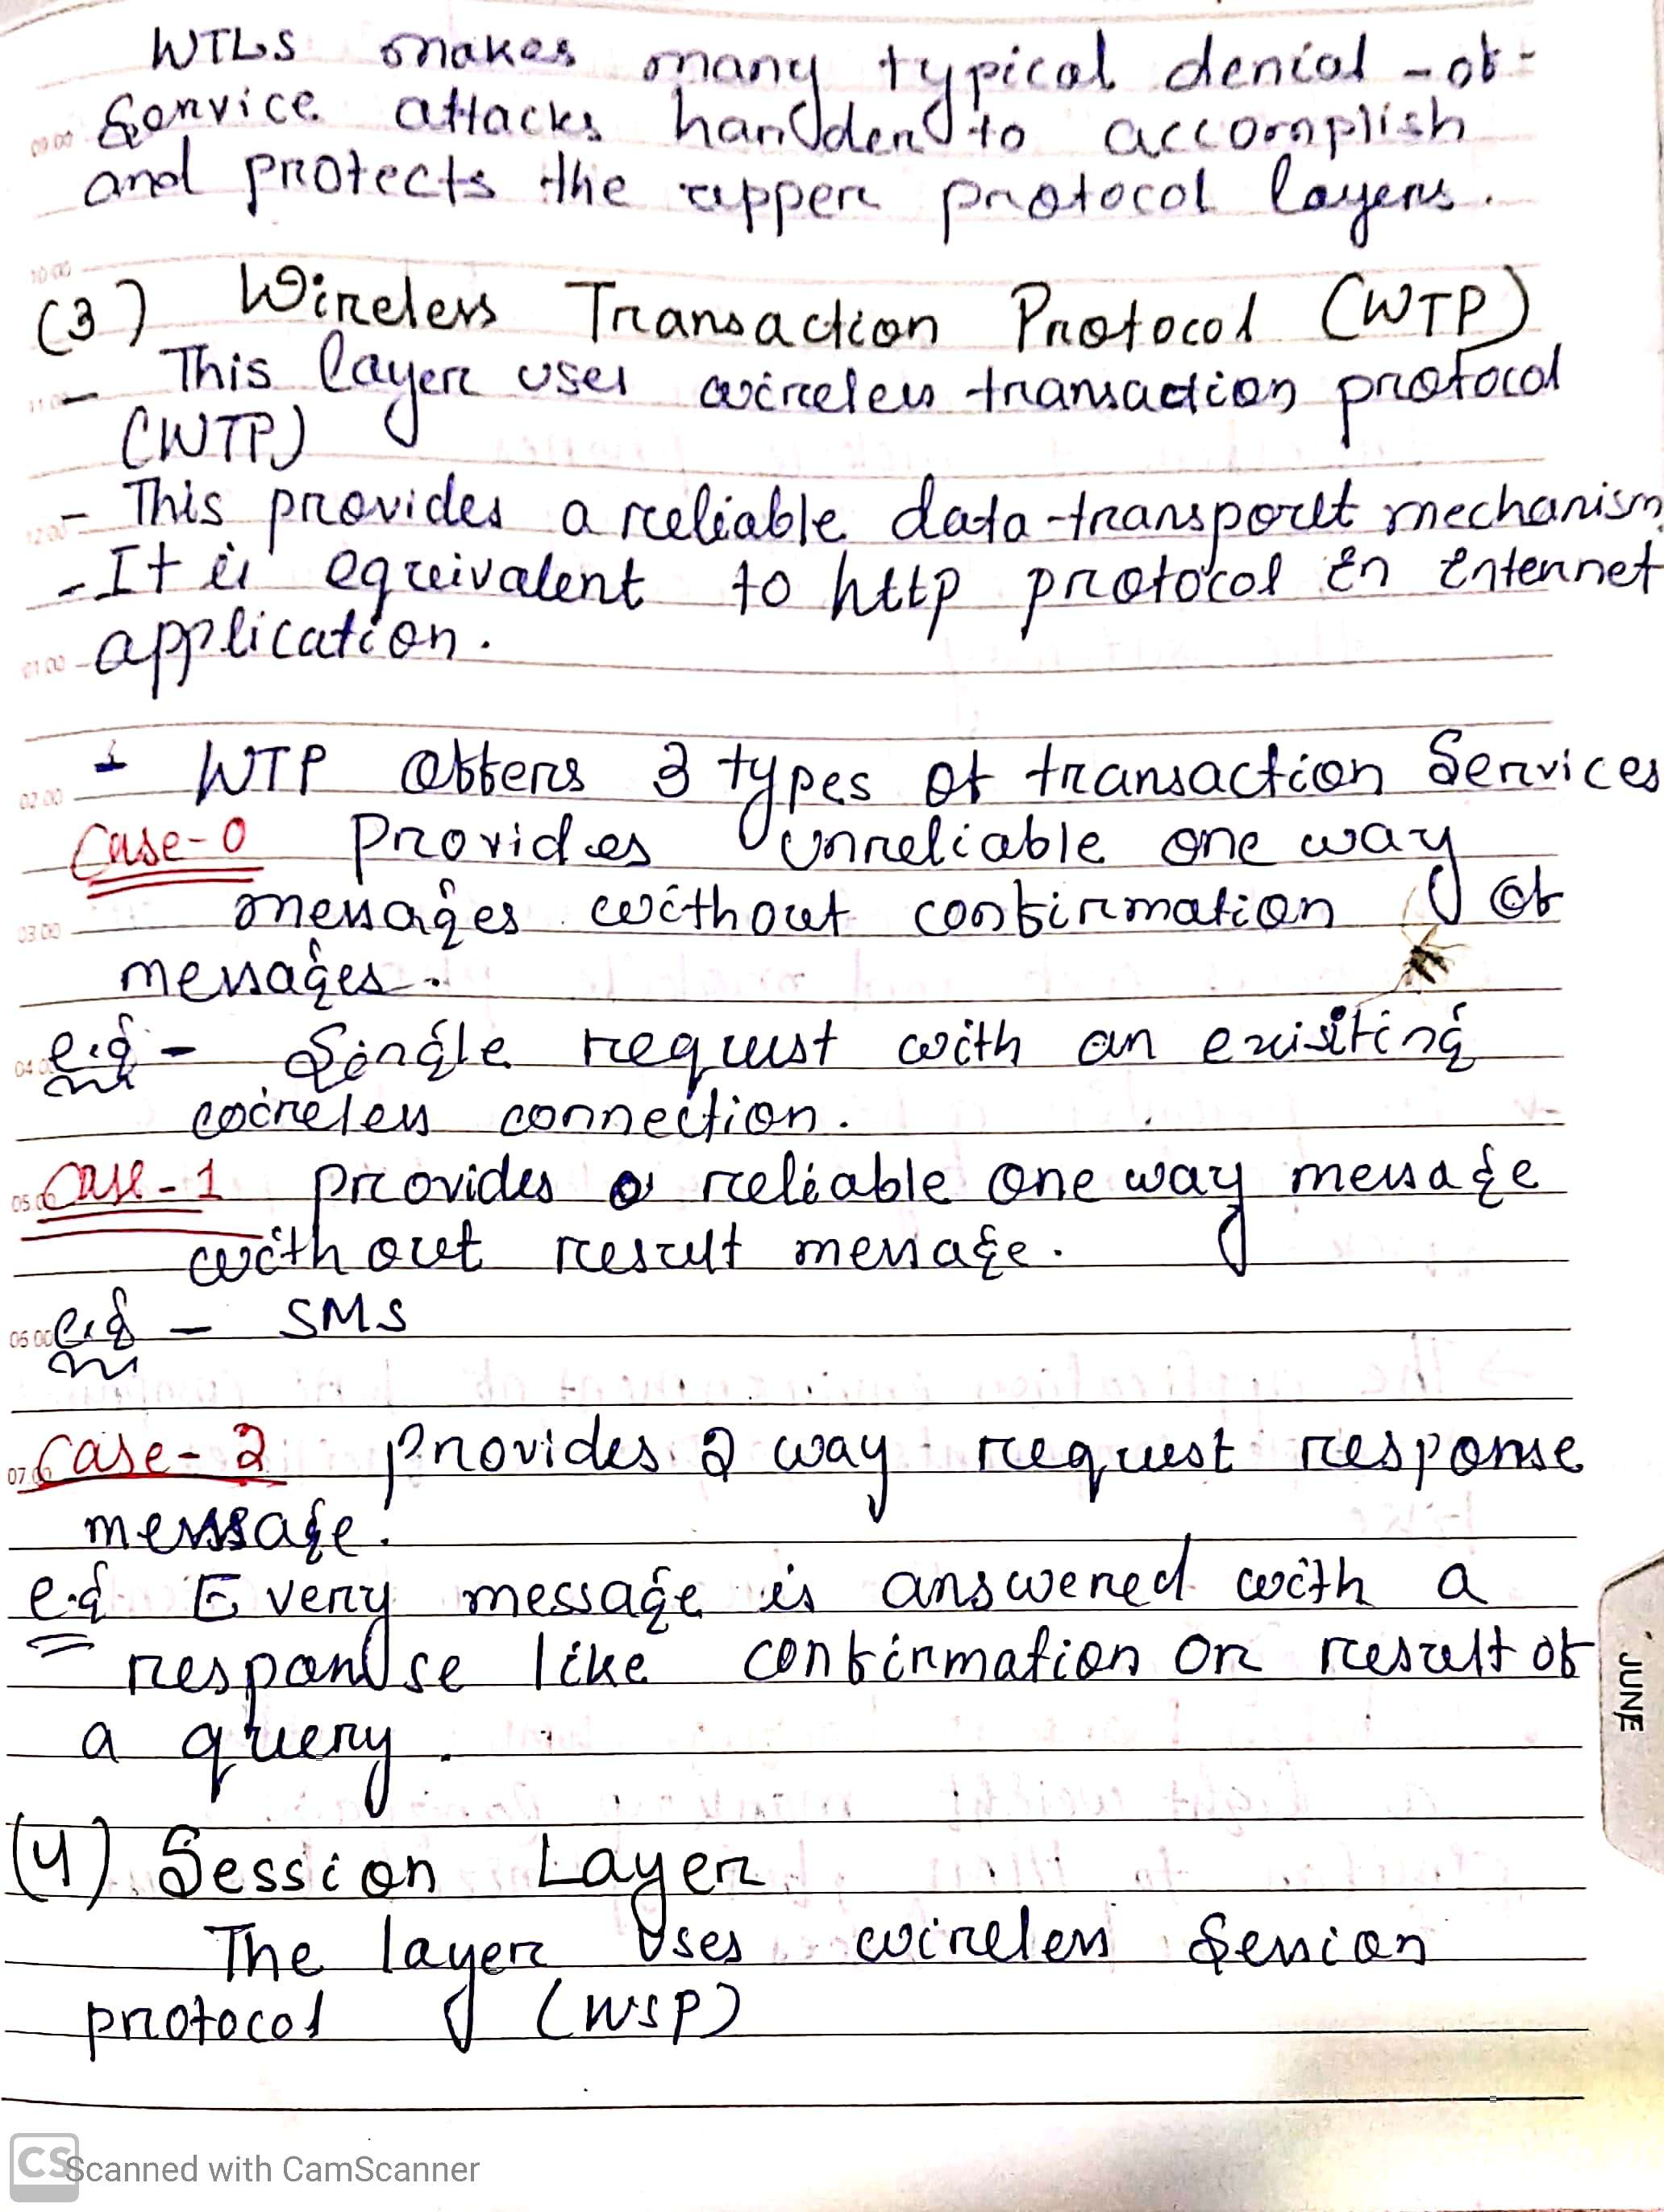 WTLS makes many typical denial-of-
Service attacks harder to accomplish
and protects the upper protocol layers.
(3) Wireless Transaction Protocol (WTP)
- This layer uses wireless transaction protocol
(WTP)
- This provides a reliable data-transport mechanism
- It is equivalent to http protocol in internet
application.
- WTP offers 3 types of transaction Services
Case-0 Provides unreliable one way
messages without confirmation of
messages.
e.g - Single request with an existing
wireless connection.
Case-1 provides a reliable one way message
without result message.
e.g - SMS
Case-2 Provides 2 way request response
message.
e.g Every message is answered with a
response like confirmation or result of
a query.
(4) Session Layer
The layer uses wireless Session
protocol (WSP)
JUNE
09:00
10:00
11:00
12:00
01:00
02:00
03:00
04:00
05:00
06:00
07:00
CS Scanned with CamScanner